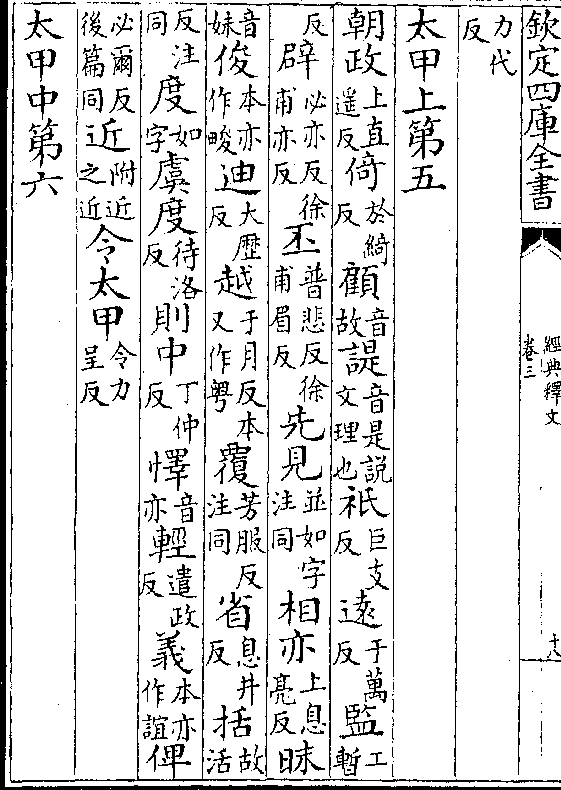 欽定四庫全書
經典釋文
卷三
十八
力代反
太甲上第五
朝政上直遥反倚於綺反顧音故諟音是説文理也祇巨支反遠于萬反監工暫
反辟必亦反徐甫亦反丕普悲反徐甫眉反先見並如字注同相亦上息亮反昧
音妹俊本亦作畯迪大歴反越于月反本又作粤覆芳服反注同省息井反括故活
反注同度如字虞度待洛反則中丁仲反懌音亦輕遣政反義本亦作誼俾
必爾反後篇同近附近之近令太甲令力呈反
太甲中第六